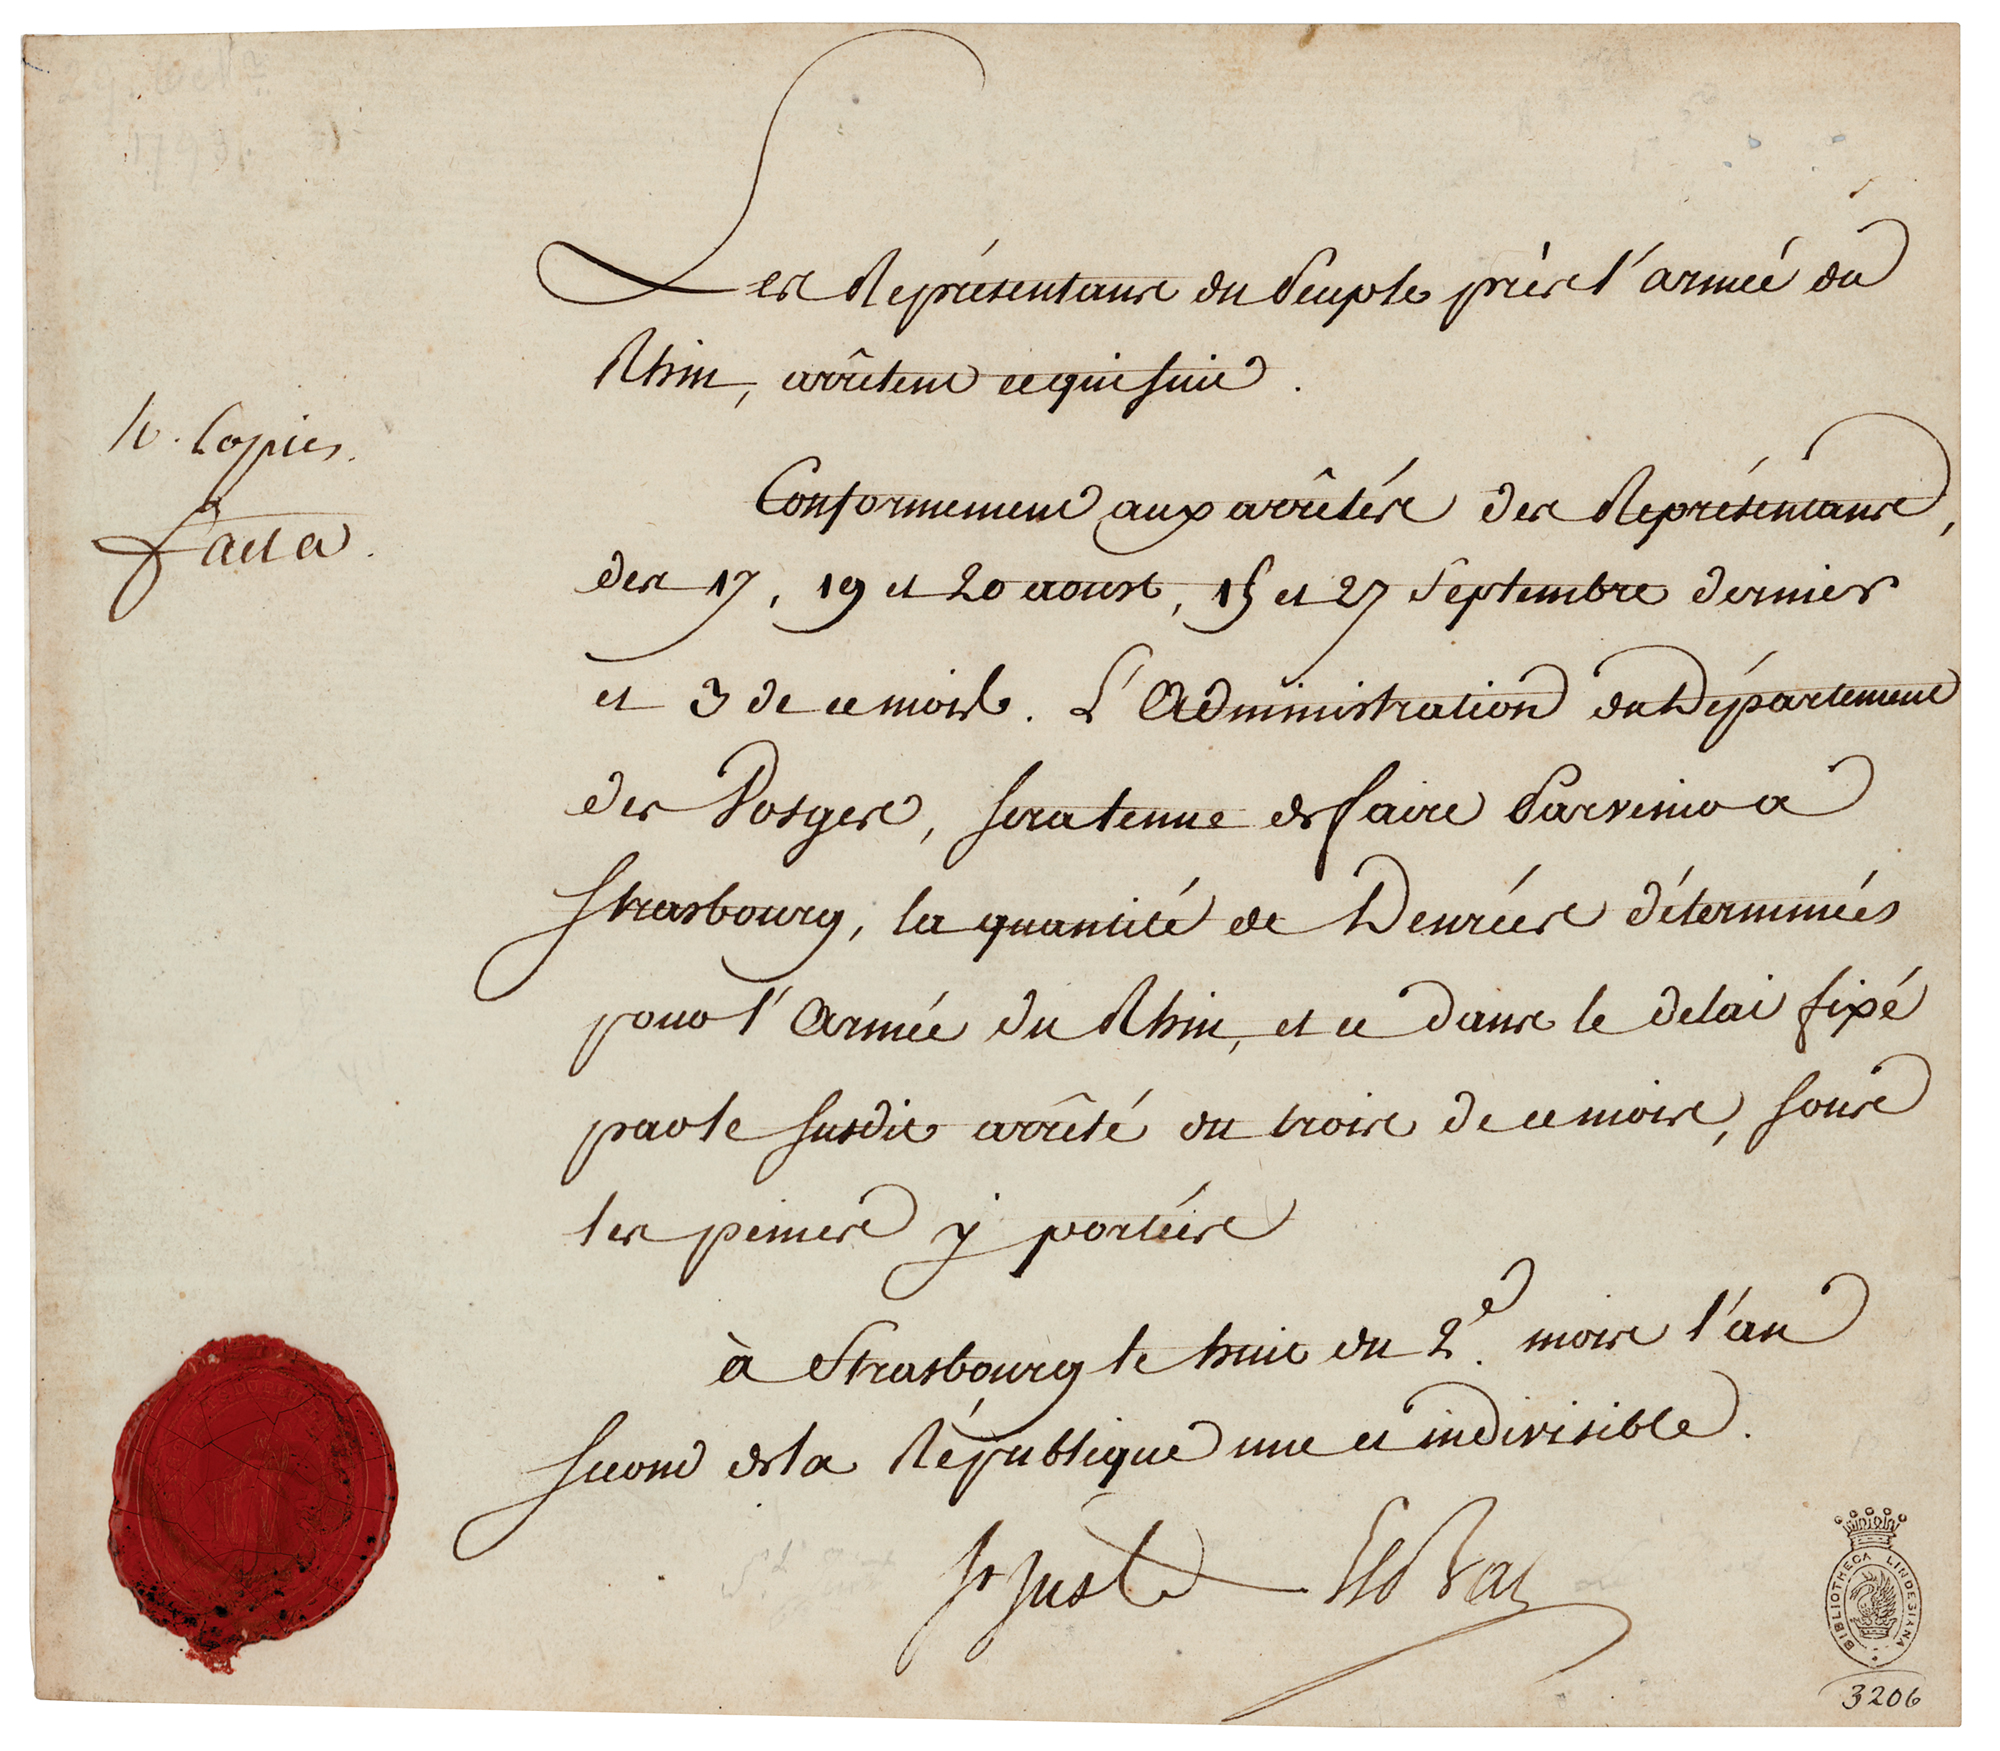 29 Oct
1793
Les Représentans du Peuple près l'armée du
Rhin, arrêtent ce qui suit.
4. Copies.
facta.
Conformement aux arrêtés des Représentans,
des 17, 19 et 20 aoust, 15 et 27 Septembre dernier
et 3 de ce mois. L'Administration du Département
des Vosges, sera tenue de faire Parvenir a
Strasbourg, la quantité de Denrées déterminées
pour l'Armée du Rhin, et ce dans le delai fixé
par le susdit arrêté du trois de ce mois, sous
les peines y portées
à Strasbourg le huit du 2e. mois l'an
second de la République une et indivisible.
St Just LeBas
BIBLIOTHECA LINDESIANA
3206